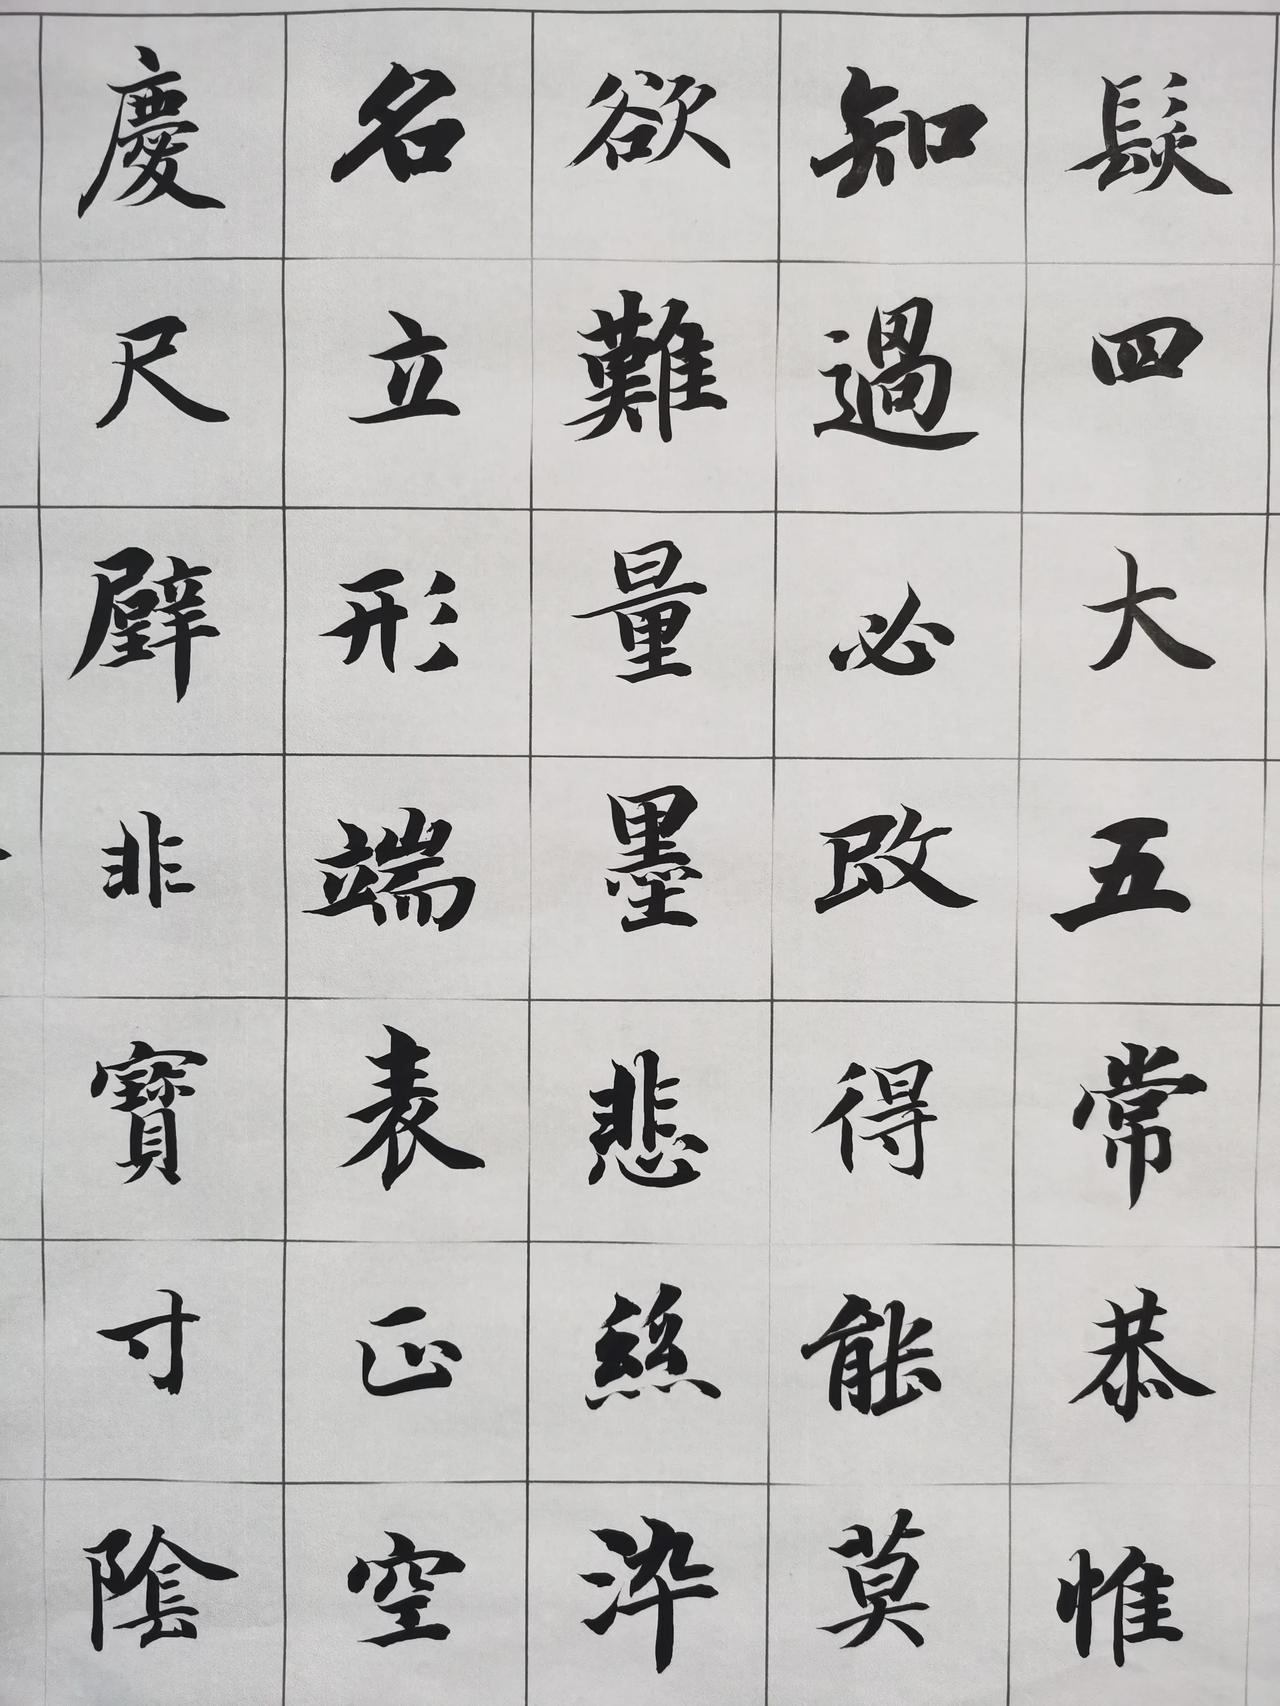 髮四大五常恭惟
知過必改得能莫
欲難量墨悲絲染
名立形端表正空
慶尺璧非寶寸陰